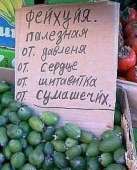 фейхуйя.
палезная
от. давленя
от. Сердце
от шитавитка
от сумашечих.